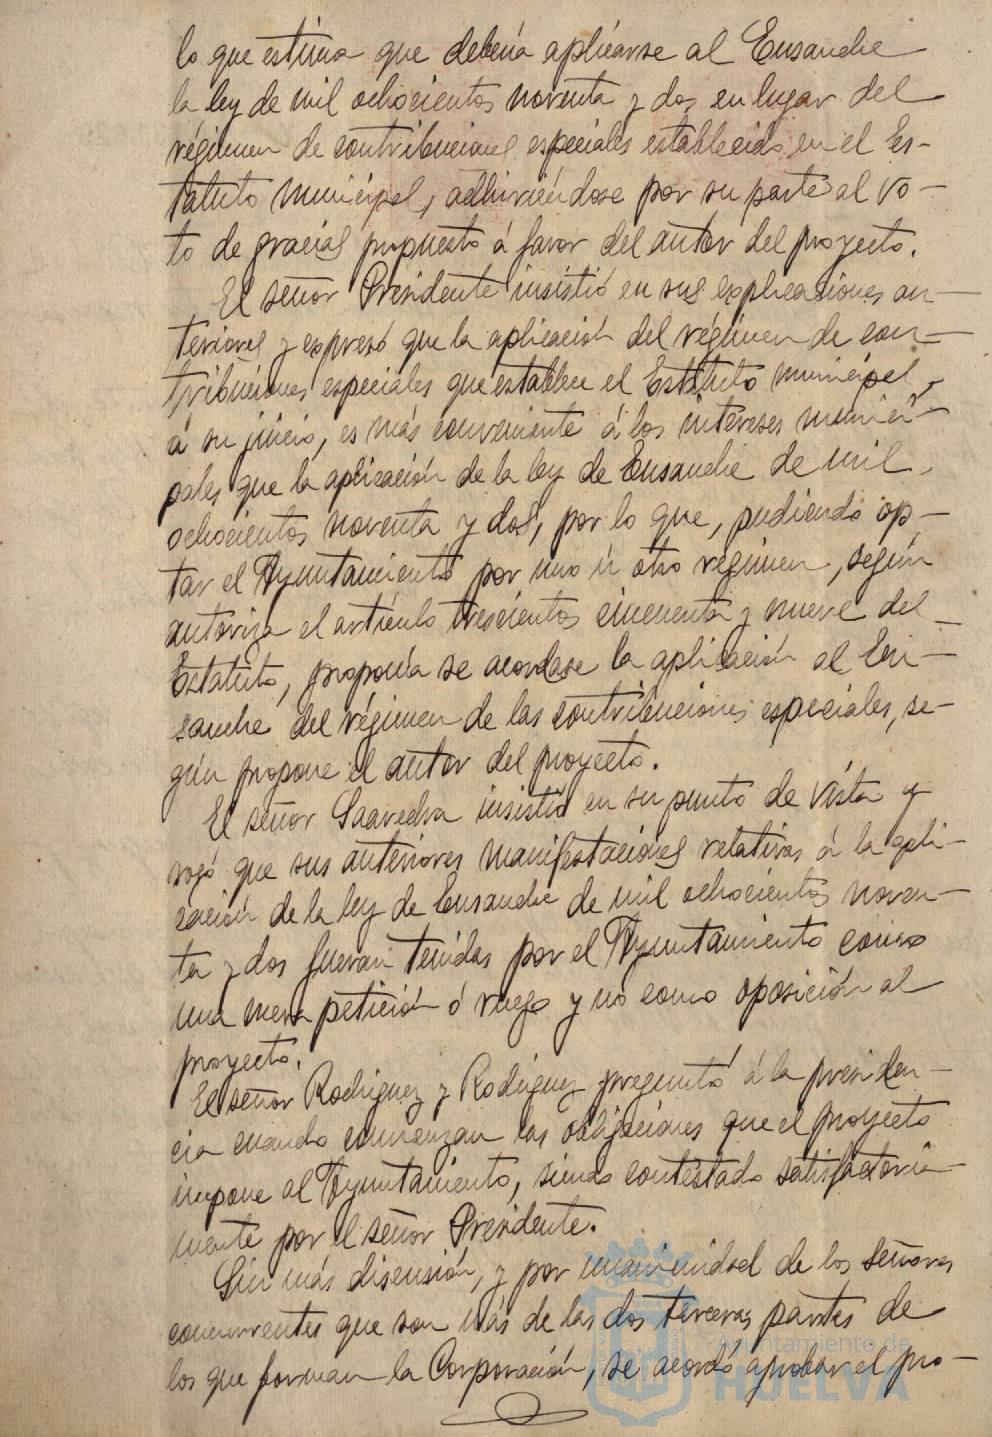 lo que estima que debería aplicarse al Ensanche
la ley de mil ochocientos noventa y dos en lugar del
régimen de contribuciones especiales establecido en el Es-
tatuto Municipal, adhiriéndose por su parte al vo-
to de gracias propuesto á favor del autor del proyecto.
El señor Presidente insistió en sus explicaciones an-
teriores y expresó que la aplicación del régimen de con-
tribuciones especiales que establece el Estatuto municipal,
á su juicio, es más conveniente á los intereses munici-
pales que la aplicación de la ley de Ensanche de mil
ochocientos noventa y dos, por lo que, pudiendo op-
tar el Ayuntamiento por uno ú otro régimen, según
autoriza el artículo trescientos cincuenta y nueve del
Estatuto, proponía se acordase la aplicación al En-
sanche del régimen de las contribuciones especiales, se-
gún propone el autor del proyecto.
El señor Saavedra insistió en su punto de vista y
rogó que sus anteriores manifestaciones relativas á la apli-
cación de la ley de Ensanche de mil ochocientos noven-
ta y dos fueran tenidas por el Ayuntamiento como
una mera petición ó ruego y no como oposición al
proyecto.
El señor Rodríguez y Rodríguez preguntó á la presiden-
cia cuando comienzan las obligaciones que el proyecto
impone al Ayuntamiento, siendo contestado satisfactoria-
mente por el señor Presidente.
Sin más discusión, y por unanimidad de los señores
concurrentes que son más de las dos terceras partes de
los que forman la Corporación, se acordó aprobar el pro-
Ayuntamiento de
HUELVA